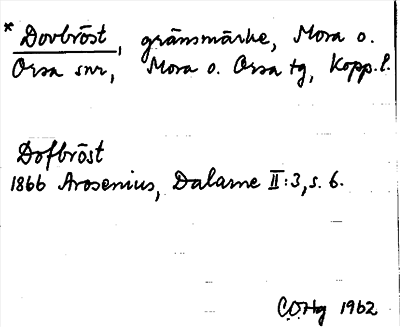 * Dovbröst, gränsmärke, Mora o.
Orsa snr, Mora o. Orsa tg, Kopp. l.
Dofbröst
1866 Arosenius, Dalarne II:3, s. 6.
COHg 1962